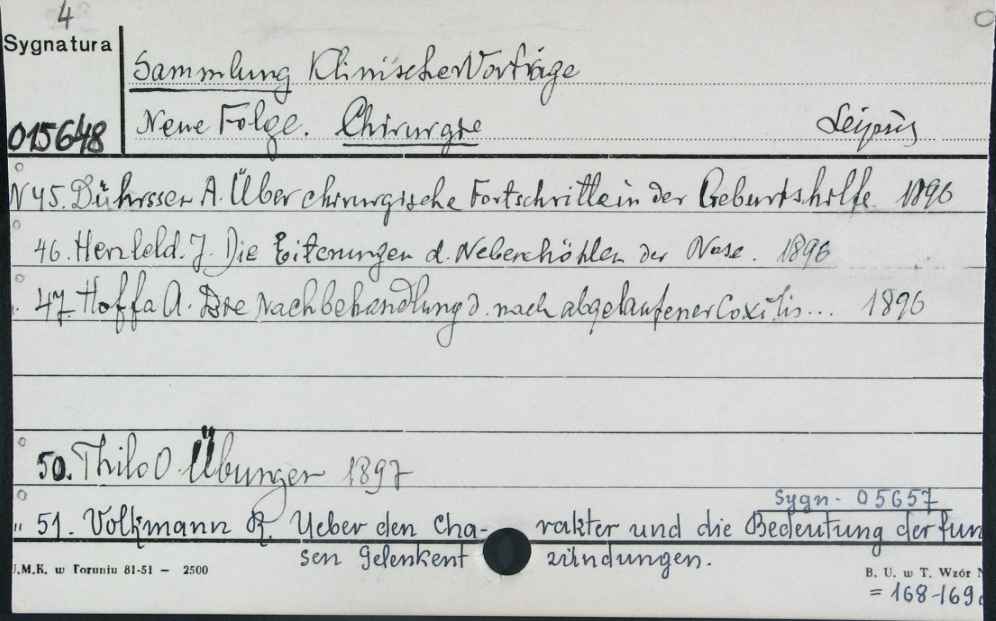 4
Sygnatura
Sammlung Klinische Vorträge
015648
Neue Folge. Chirurgie Leipzig
N 45. Dührssen A. Über chirurgische Fortschritte in der Geburtshilfe 1896
46. Herzfeld. J. Die Eiterungen d. Nebenhöhlen der Nase. 1896
47 Hoffa A. Die Nachbehandlung d. nach abgelaufener Coxitis... 1896
50. Thilo O. Übungen 1897
Sygn - 05657
" 51. Volkmann R. Ueber den Cha- rakter und die Bedeutung der fun
sen Gelenkent zündungen.
U.M.K. w Toruniu 81-51 — 2500
B. U. w T. Wzór N
= 168-169